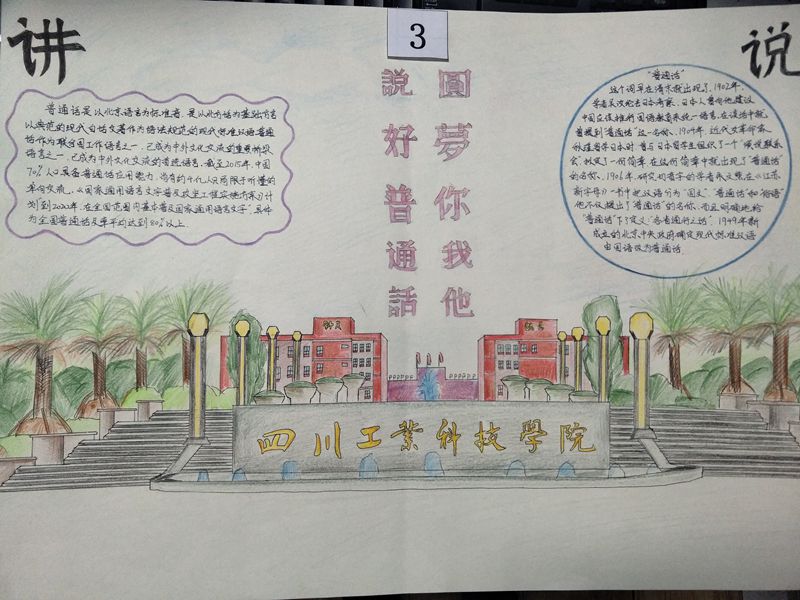 讲
3
说
圓夢你我他
說好普通話
普通话是以北京语言为标准音，是以北方话为基础方言
以典范的现代白话文著作为语法规范的现代标准汉语普通
话作为联合国工作语言之一，已成为中外文化交流的重要桥梁
语言之一，已成为中外文化交流的首选语言。截至2015年，中国
70%人口具备普通话应用能力，尚有约4亿人只局限于听懂的
单向交流，《国家通用语言文字普及攻坚工程实施方案》计
划"到2020年，在全国范围内基本普及国家通用语言文字"，具体
为全国普通话及率平均达到80%以上.
"普通话"
这个词早在清末就出现了，1902年，
学者吴汝纶去日本考察，日本人曾向他建议
中国应该推行国语教育来统一语言，在谈话中就
曾提到"普通话"这一名称，1904年，近代女革命家
秋瑾留学日本时，曾与日本留学生组织了一个"演说联系
会"，拟定了一份简章，在这份简章中就出现了"普通话"
的名称，1906年，研究切音字的学者朱文熊在《江苏
新字母》一书中把汉语分为"国文"、"普通话"和"俗语"
他不仅提出了"普通话"的名称，而且明确地给
"普通话"下了定义："各省通行之话"，1949年新
成立的北京中央政府确定现代标准汉语
由国语改为普通话.
四川工業科技學院